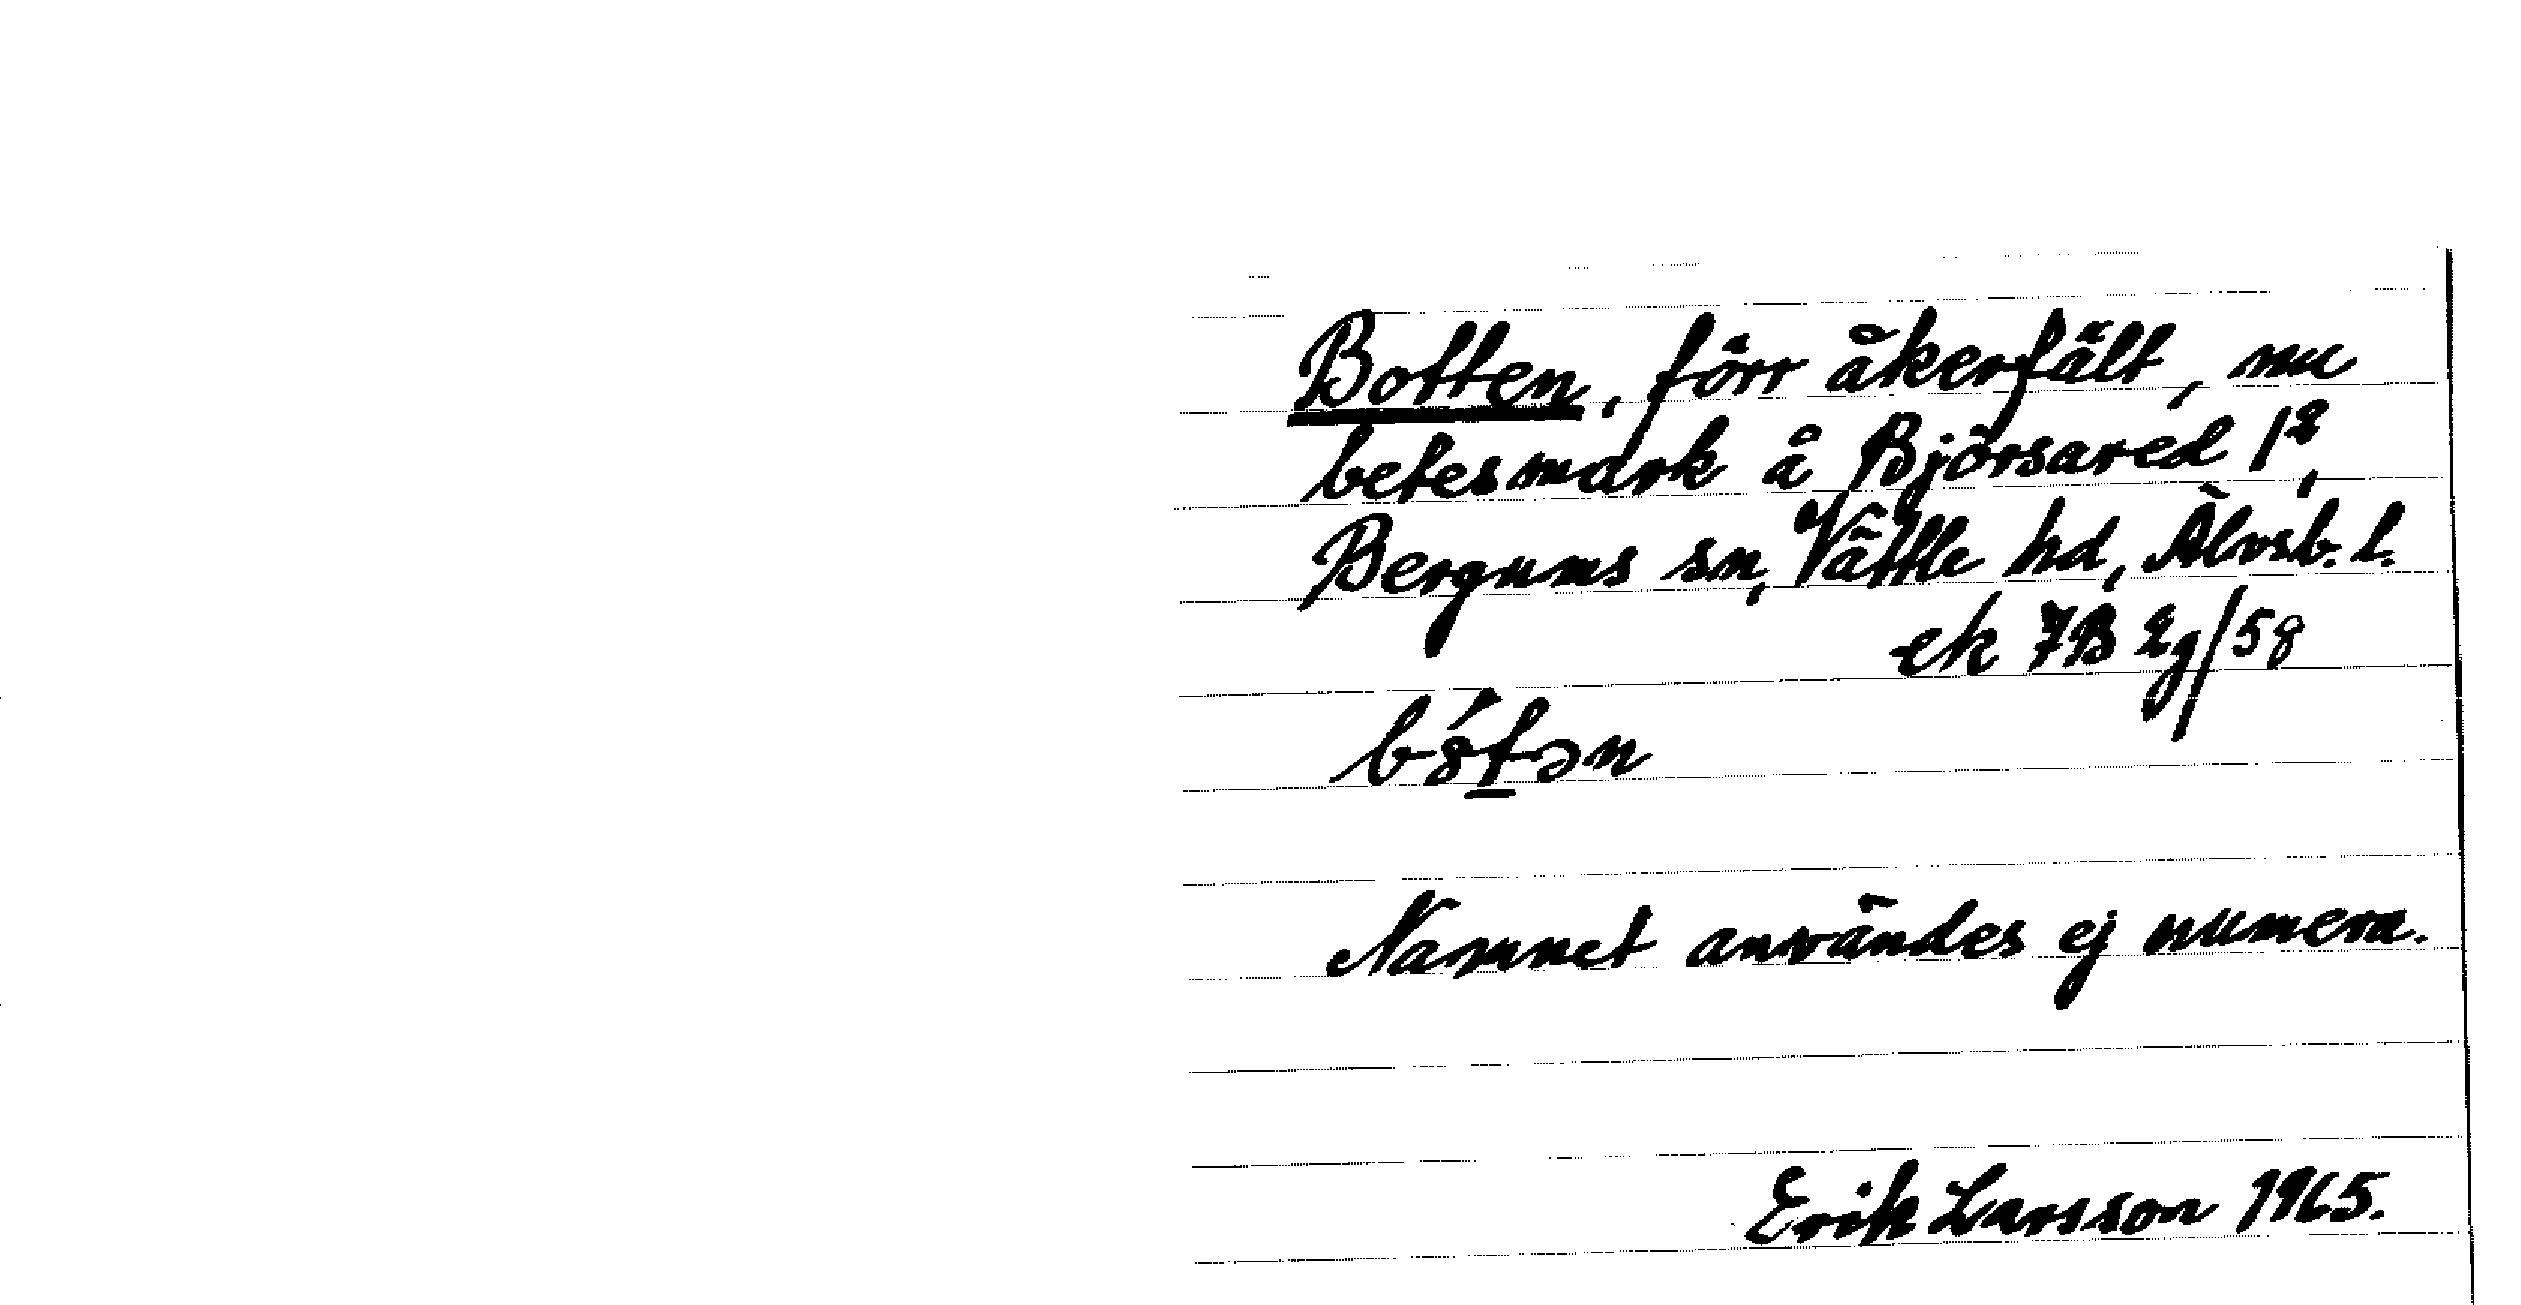 Botten, förr åkerfält, nu
betesmark å Björsared 1²,
Bergums sn, Vättle hd, Älvsb. l.
ek 7B 2g/58
Namnet användes ej numera.
Erik Larsson 1965.